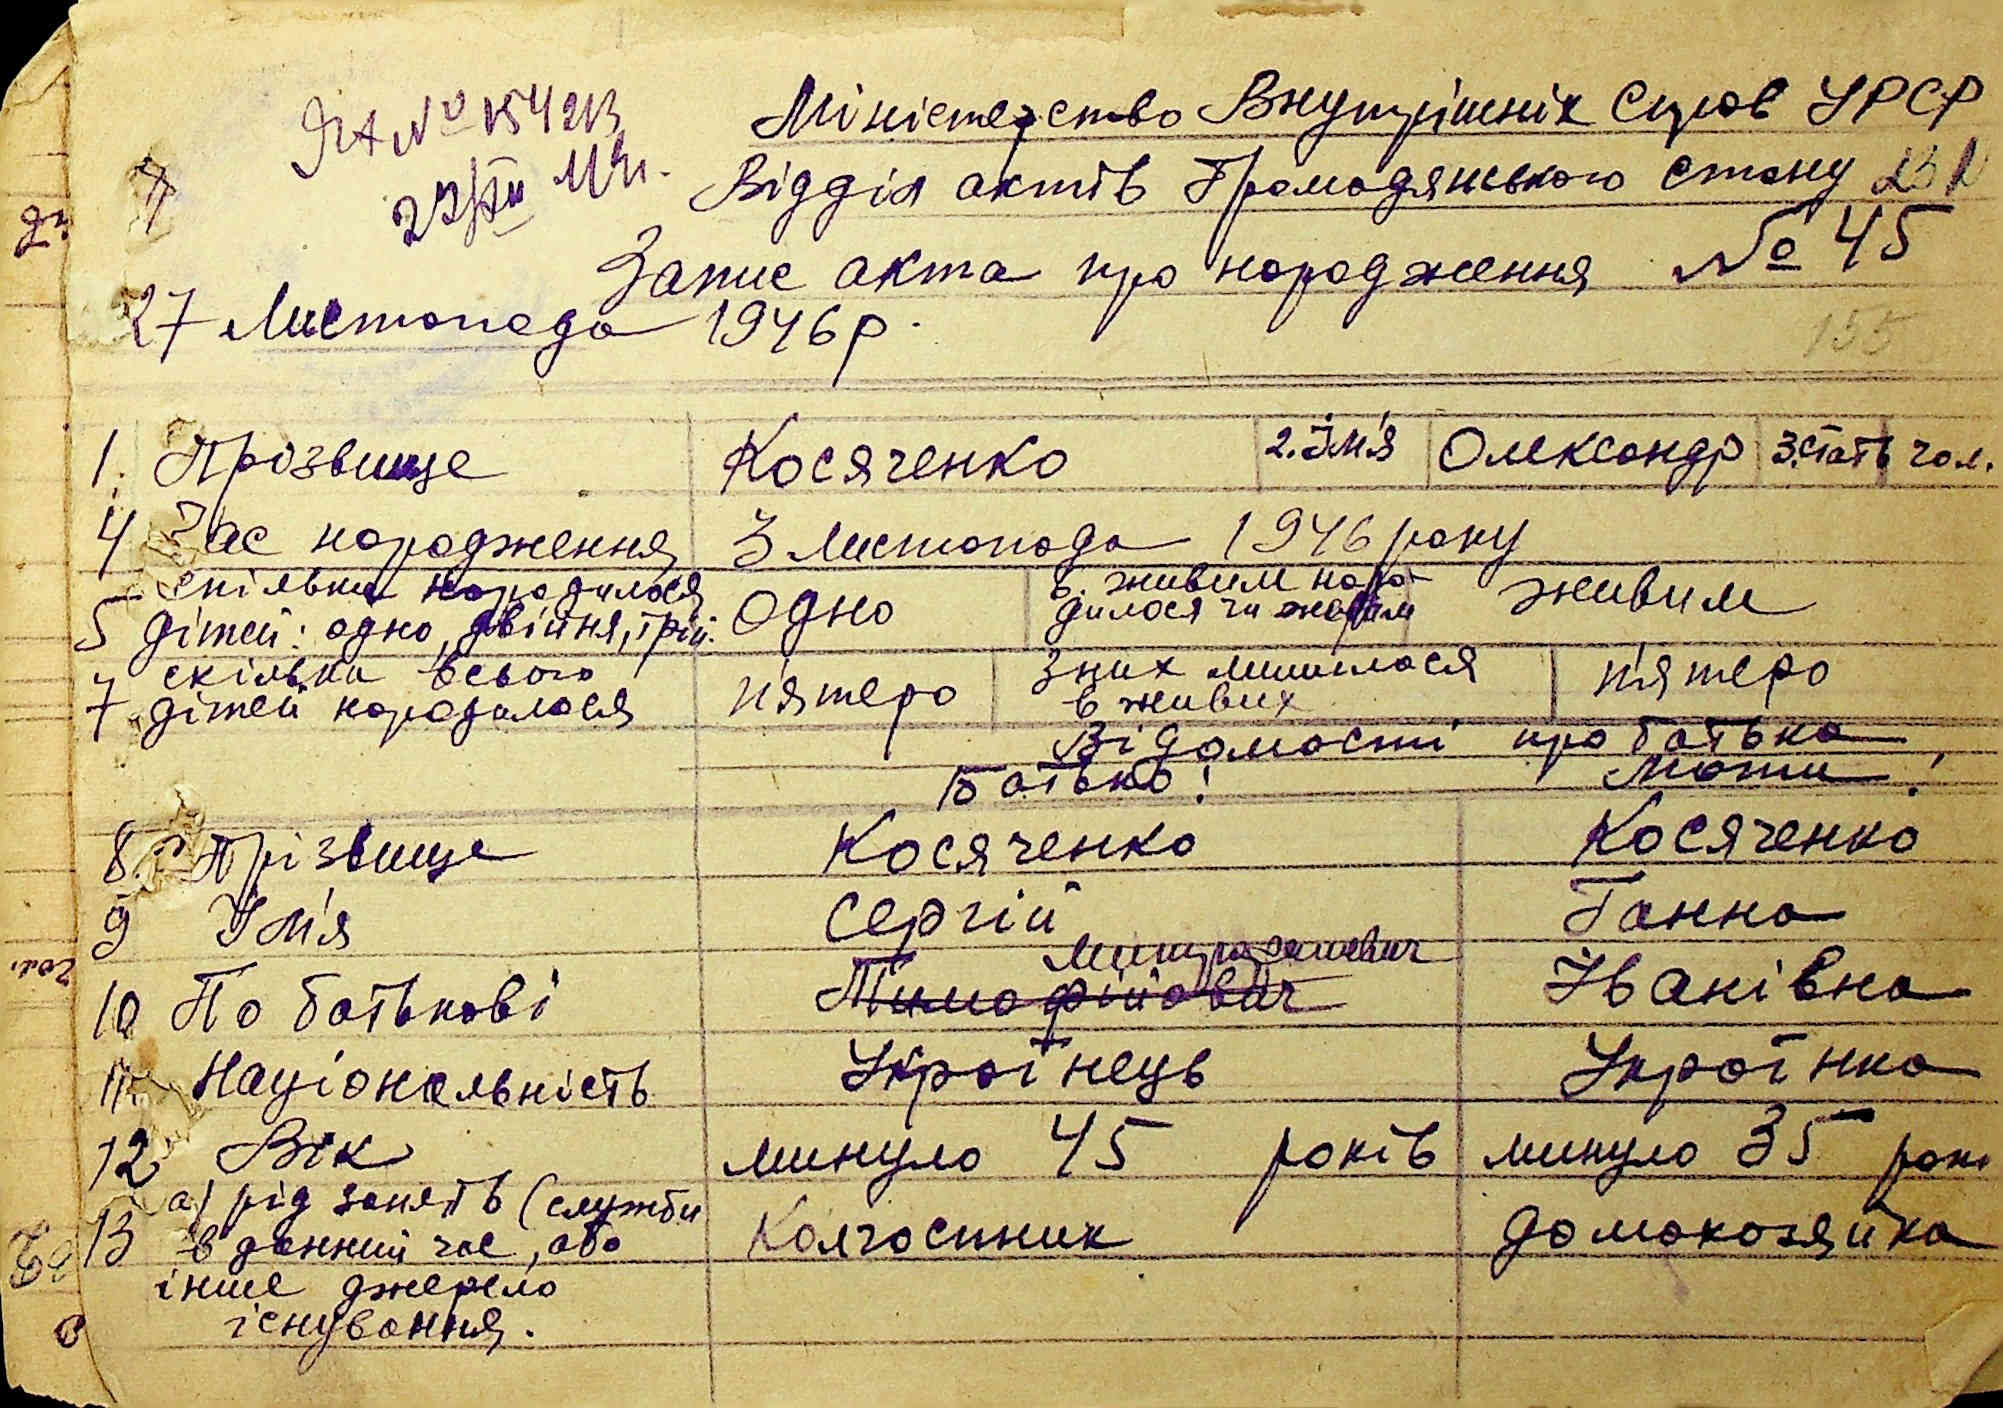 ЯА № 154213
Міністерство Внутрішніх Справ УРСР
Відділ актів Громадянського стану
Запис акта про народження № 45
27 Листопада 1946 р.
155
1. Прозвище Косяченко 2. Їм'я Олександр 3. Стать чол.
4 Час народження 3 Листопада 1946 року
5 скільки народилося дітей: одно, двійня, трій. Одно 6. живим наро-дилося чи живим
7 скільки всього дітей народилося п'ятеро З них лишилося в живих п'ятеро
Відомості про батька
Батько! Мати!
8 Прізвище Косяченко Косяченко
9 Їм'я Сергій Ганна
10 По батькові Тимофійович Іванівна
11. Національність Українець Українка
12 Вік минуло 45 років минуло 35 рокі
13 а) рід занять (служби в данний час, або Колгоспник домохозяйка
інше джерело
існування.